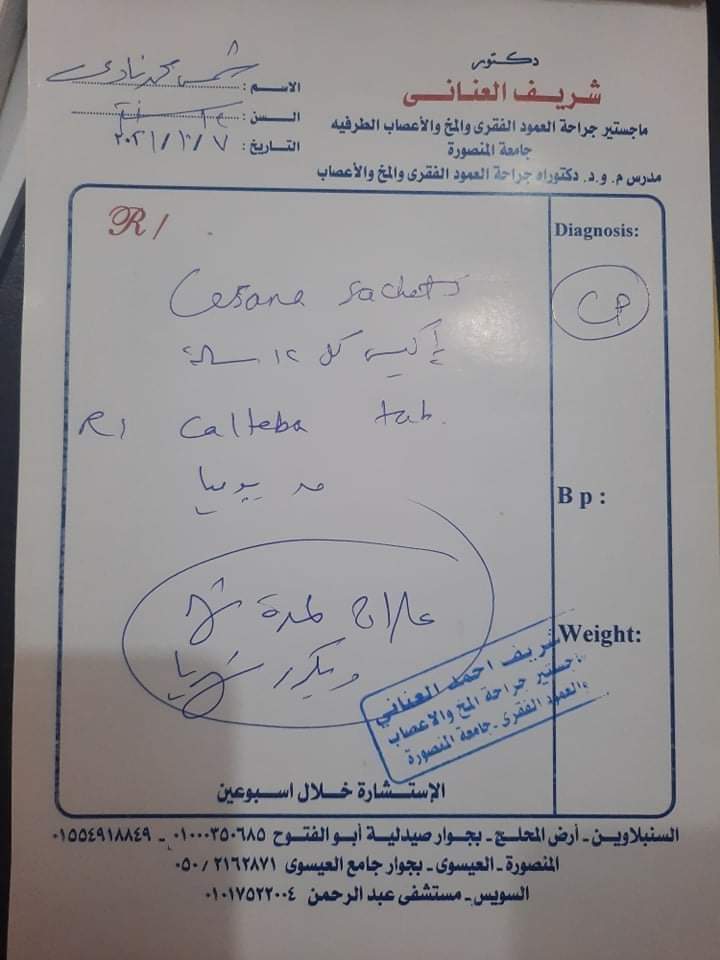 دكتور
شريف العنانى
ماجستير جراحة العمود الفقرى والمخ والأعصاب الطرفيه
جامعة المنصورة
مدرس م. و.د. دكتوراه جراحة العمود الفقرى والمخ والأعصاب
الاسم : شمس محمد نادى
السن :
التاريخ : ٢٠٢١/١٠/٧
R/
Diagnosis:
CP
sachets
كيس كل ١٢ ساعة
R/ tab.
يوميا
علاج لمدة شهر
ويكرر شهريا
Bp:
Weight:
شريف احمد العناني
ماجستير جراحة المخ والاعصاب
والعمود الفقرى - جامعة المنصورة
الإستشارة خلال اسبوعين
السنبلاوين - أرض المحلج - بجوار صيدلية أبو الفتوح ٠١٠٠٠٣٥٠٦٨٥ - ٠١٥٥٤٩١٨٨٤٩
المنصورة - العيسوى - بجوار جامع العيسوى ٠٥٠/٢١٦٢٨٧١
السويس - مستشفى عبد الرحمن ٠١٠١٧٥٢٢٠٠٤